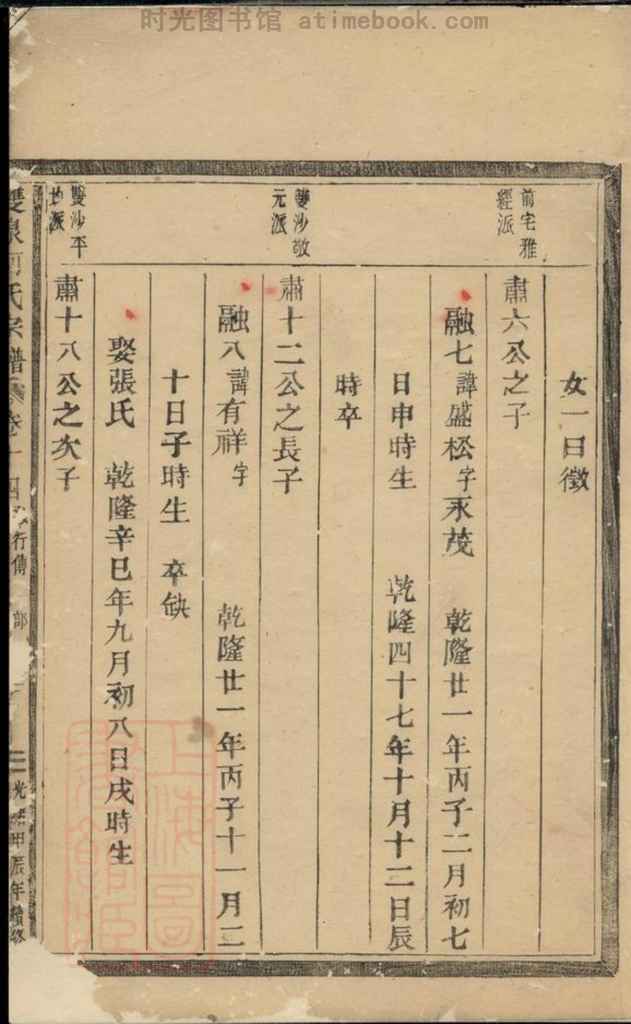 时光图书馆 atimebook.com
女一曰徵
前宅雅
經派
肅六公之子
融七諱盛松字永茂 乾隆廿一年丙子二月初七
日申時生 乾隆四十七年十月十二日辰
時卒
雙沙敬
元派
肅十二公之長子
融八諱有祥字 乾隆廿一年丙子十一月二
十日子時生 卒缺
娶張氏 乾隆辛巳年九月初八日戌時生
雙沙平
派
肅十八公之次子
氏宗譜 行傳
光緒甲辰年續修